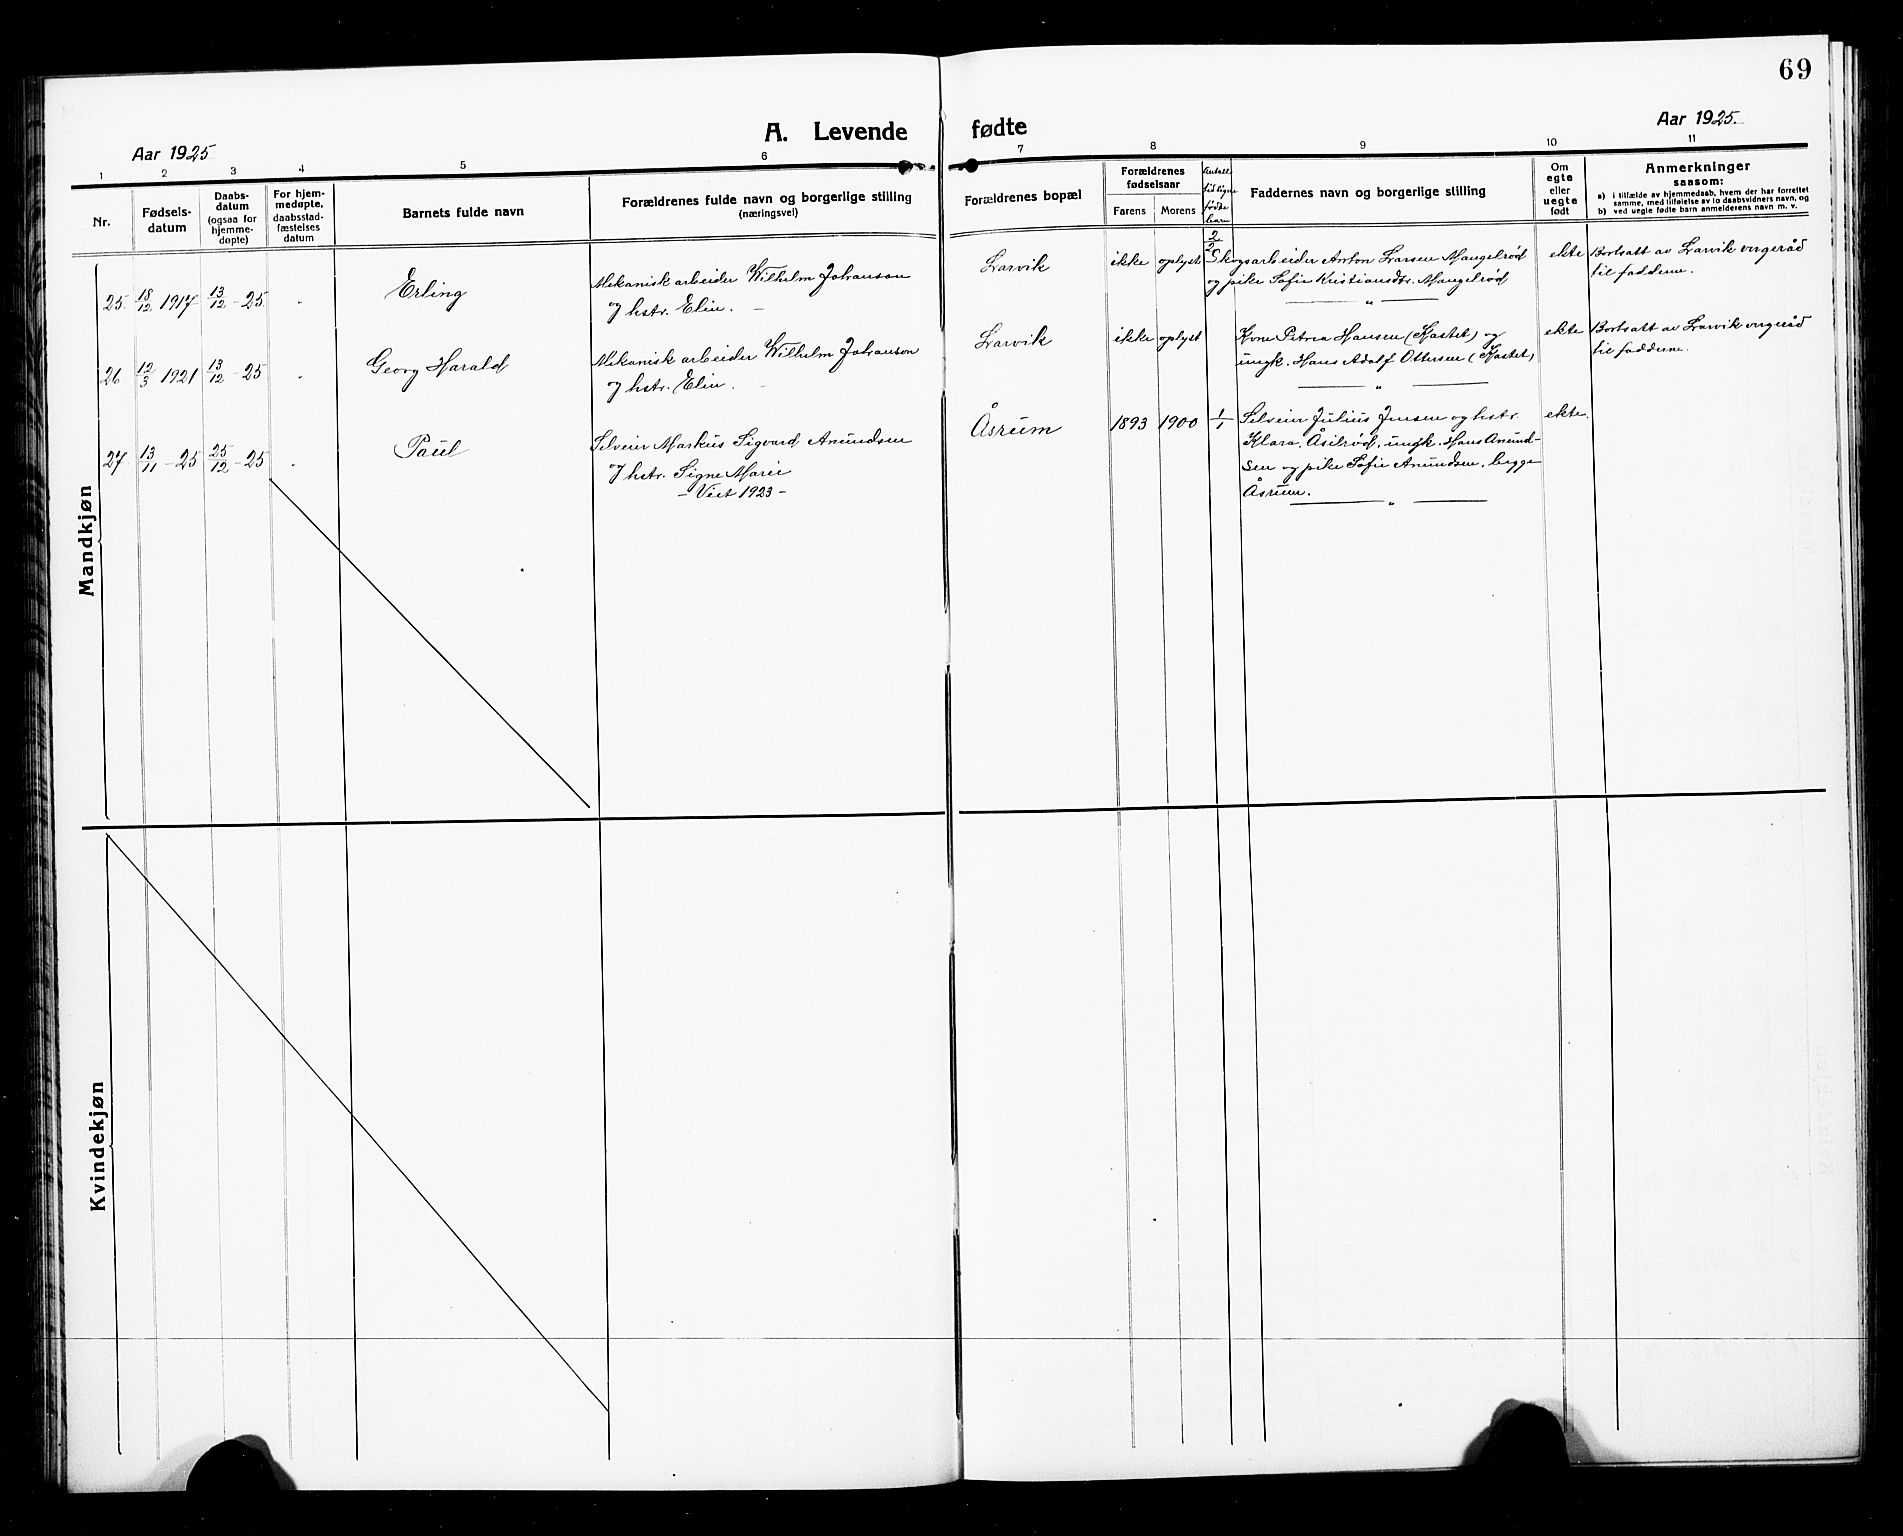 69
A. Levende fødte
Aar 1925
Aar 1925.
1 2 3 4 5 6 7 8 9 10 11
Nr.
Fødsels-
datum
Daabs-
datum
(ogsaa for
hjemme-
døpte)
For hjem-
medøpte,
daabsstad-
fæstelses
datum
Barnets fulde navn
Forældrenes fulde navn og borgerlige stilling
(næringsvei)
Forældrenes bopæl
Forældrenes
fødselsaar
Farens Morens
Antall
tidligere
fødte
barn
Faddernes navn og borgerlige stilling
Om
egte
eller
uegte
født
Anmerkninger
saasom:
a) i tilfælde av hjemmedaab, hvem der har forrettet
samme, med tilføielse av to daabsvidners navn, og
b) ved uegte fødte barn anmelderens navn m. v.
Mandkjøn
25. 18/12 1917 13/12 - 25 "
Erling
Mekanisk arbeider Wilhelm Johanson
og hstr. Elin. —
Larvik
ikke oplyst
2/2
Skogsarbeider Anton Larsen Mangelrød
og pike Sofie Kristiansdtr. Mangelrød
— " —
ekte
Bortsatt av Larvik vergeråd
til fadderne.
26. 12/3 1921 13/12 - 25 "
Georg Harald
Mekanisk arbeider Wilhelm Johanson
og hstr. Elin. —
Larvik
ikke oplyst
Kone Petrea Hansen (Kastet) og
ungk. Hans Adolf Ottersen (Kastet)
— " —
ekte
Bortsatt av Larvik vergeråd
til fadderne.
27. 13/11 - 25 25/12 - 25 "
Paul
Selveier Markus Sigvard Anundsen
og hstr. Signe Marie
- Viet 1923 -
Åsrum
1893 1900 1/1
Selveier Julius Jensen og hstr.
Klara, Åsilrød, ungk. Hans Anund-
sen og pike Sofie Anundsen, begge
Åsrum.
— " —
ekte.
Kvindekjøn